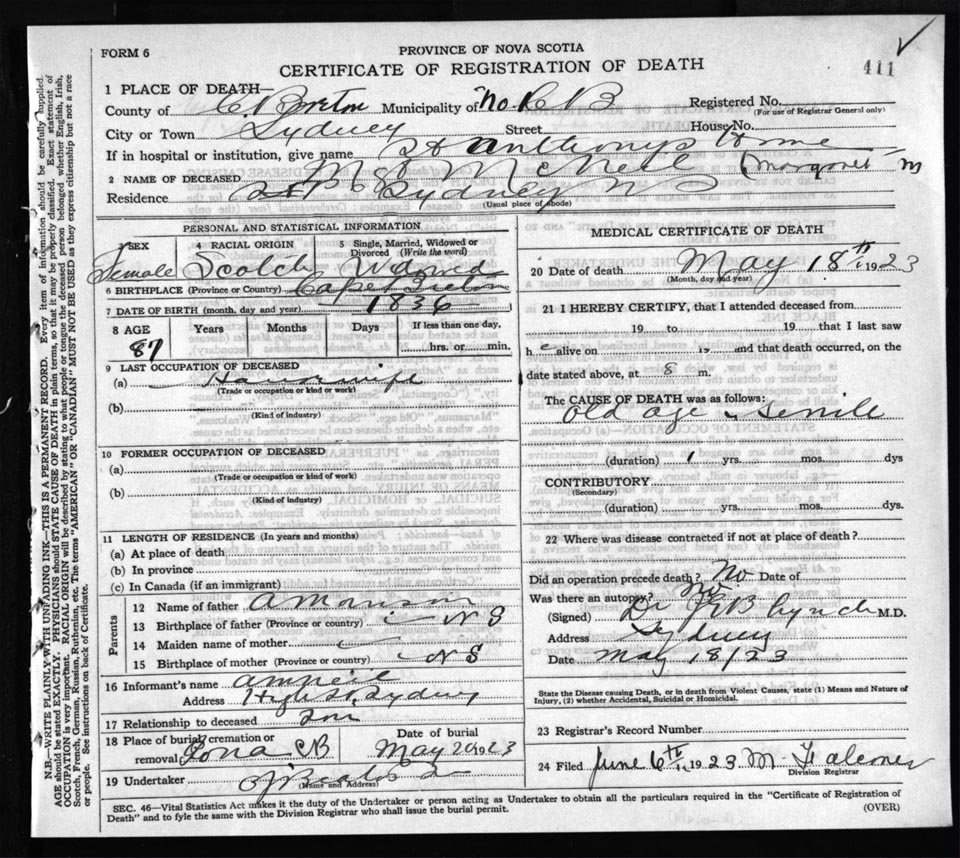 FORM 6
PROVINCE OF NOVA SCOTIA
CERTIFICATE OF REGISTRATION OF DEATH
411
1 PLACE OF DEATH—
County of C. Breton Municipality of No. C B Registered No.
(For use of Registrar General only)
City or Town Sydney Street House No.
If in hospital or institution, give name St Anthonys Home
2 NAME OF DECEASED Mrs McNeil (Margaret M
Residence Sydney N S
(Usual place of abode)
PERSONAL AND STATISTICAL INFORMATION
3 SEX 4 RACIAL ORIGIN 5 Single, Married, Widowed or Divorced (Write the word)
Female Scotch Widowed
6 BIRTHPLACE (Province or Country) Cape Breton
7 DATE OF BIRTH (month, day and year) 1836
8 AGE Years Months Days If less than one day,
87 hrs. or min.
9 LAST OCCUPATION OF DECEASED
(a) Housewife
(Trade or occupation or kind or work)
(b)
(Kind of industry)
10 FORMER OCCUPATION OF DECEASED
(a)
(Trade or occupation or kind of work)
(b)
(Kind of industry)
11 LENGTH OF RESIDENCE (In years and months)
(a) At place of death
(b) In province
(c) In Canada (if an immigrant)
Parents
12 Name of father
13 Birthplace of father (Province or country) N S
14 Maiden name of mother
15 Birthplace of mother (Province or country) N S
16 Informant's name
Address High St Sydney
17 Relationship to deceased Son
18 Place of burial, cremation or removal Iona CB
Date of burial
May 20 1923
19 Undertaker
(Name and Address)
MEDICAL CERTIFICATE OF DEATH
20 Date of death May 18th 1923
(Month, day and year)
21 I HEREBY CERTIFY, that I attended deceased from
19 to 19 that I last saw
h e alive on 19 and that death occurred, on the
date stated above, at 8 m.
The CAUSE OF DEATH was as follows:
Old age & senile
(duration) 1 yrs. mos. dys
CONTRIBUTORY
(Secondary)
(duration) yrs. mos. dys.
22 Where was disease contracted if not at place of death?
Did an operation precede death? No Date of
Was there an autopsy? No
(Signed) Dr Lynch M.D.
Address Sydney
Date May 18/23
State the Disease causing Death, or in death from Violent Causes, state (1) Means and Nature of
Injury, (2) whether Accidental, Suicidal or Homicidal.
23 Registrar's Record Number
24 Filed June 6th 1923 M. Falconer
Division Registrar
SEC. 46—Vital Statistics Act makes it the duty of the Undertaker or person acting as Undertaker to obtain all the particulars required in the "Certificate of Registration of
Death" and to fyle the same with the Division Registrar who shall issue the burial permit.
(OVER)
N.B.—WRITE PLAINLY WITH UNFADING INK—THIS IS A PERMANENT RECORD. Every item of information should be carefully supplied.
AGE should be stated EXACTLY. PHYSICIANS should STATE CAUSE OF DEATH in plain terms, so that it may be properly classified. Exact statement of
OCCUPATION is very important. RACIAL ORIGIN will be described by stating to what people or tongue the deceased person belonged whether English, Irish,
Scotch, French, German, Russian, Ruthenian, etc. The terms "AMERICAN" or "CANADIAN" MUST NOT BE USED as they express citizenship but not a race
or people. See instructions on back of Certificate.